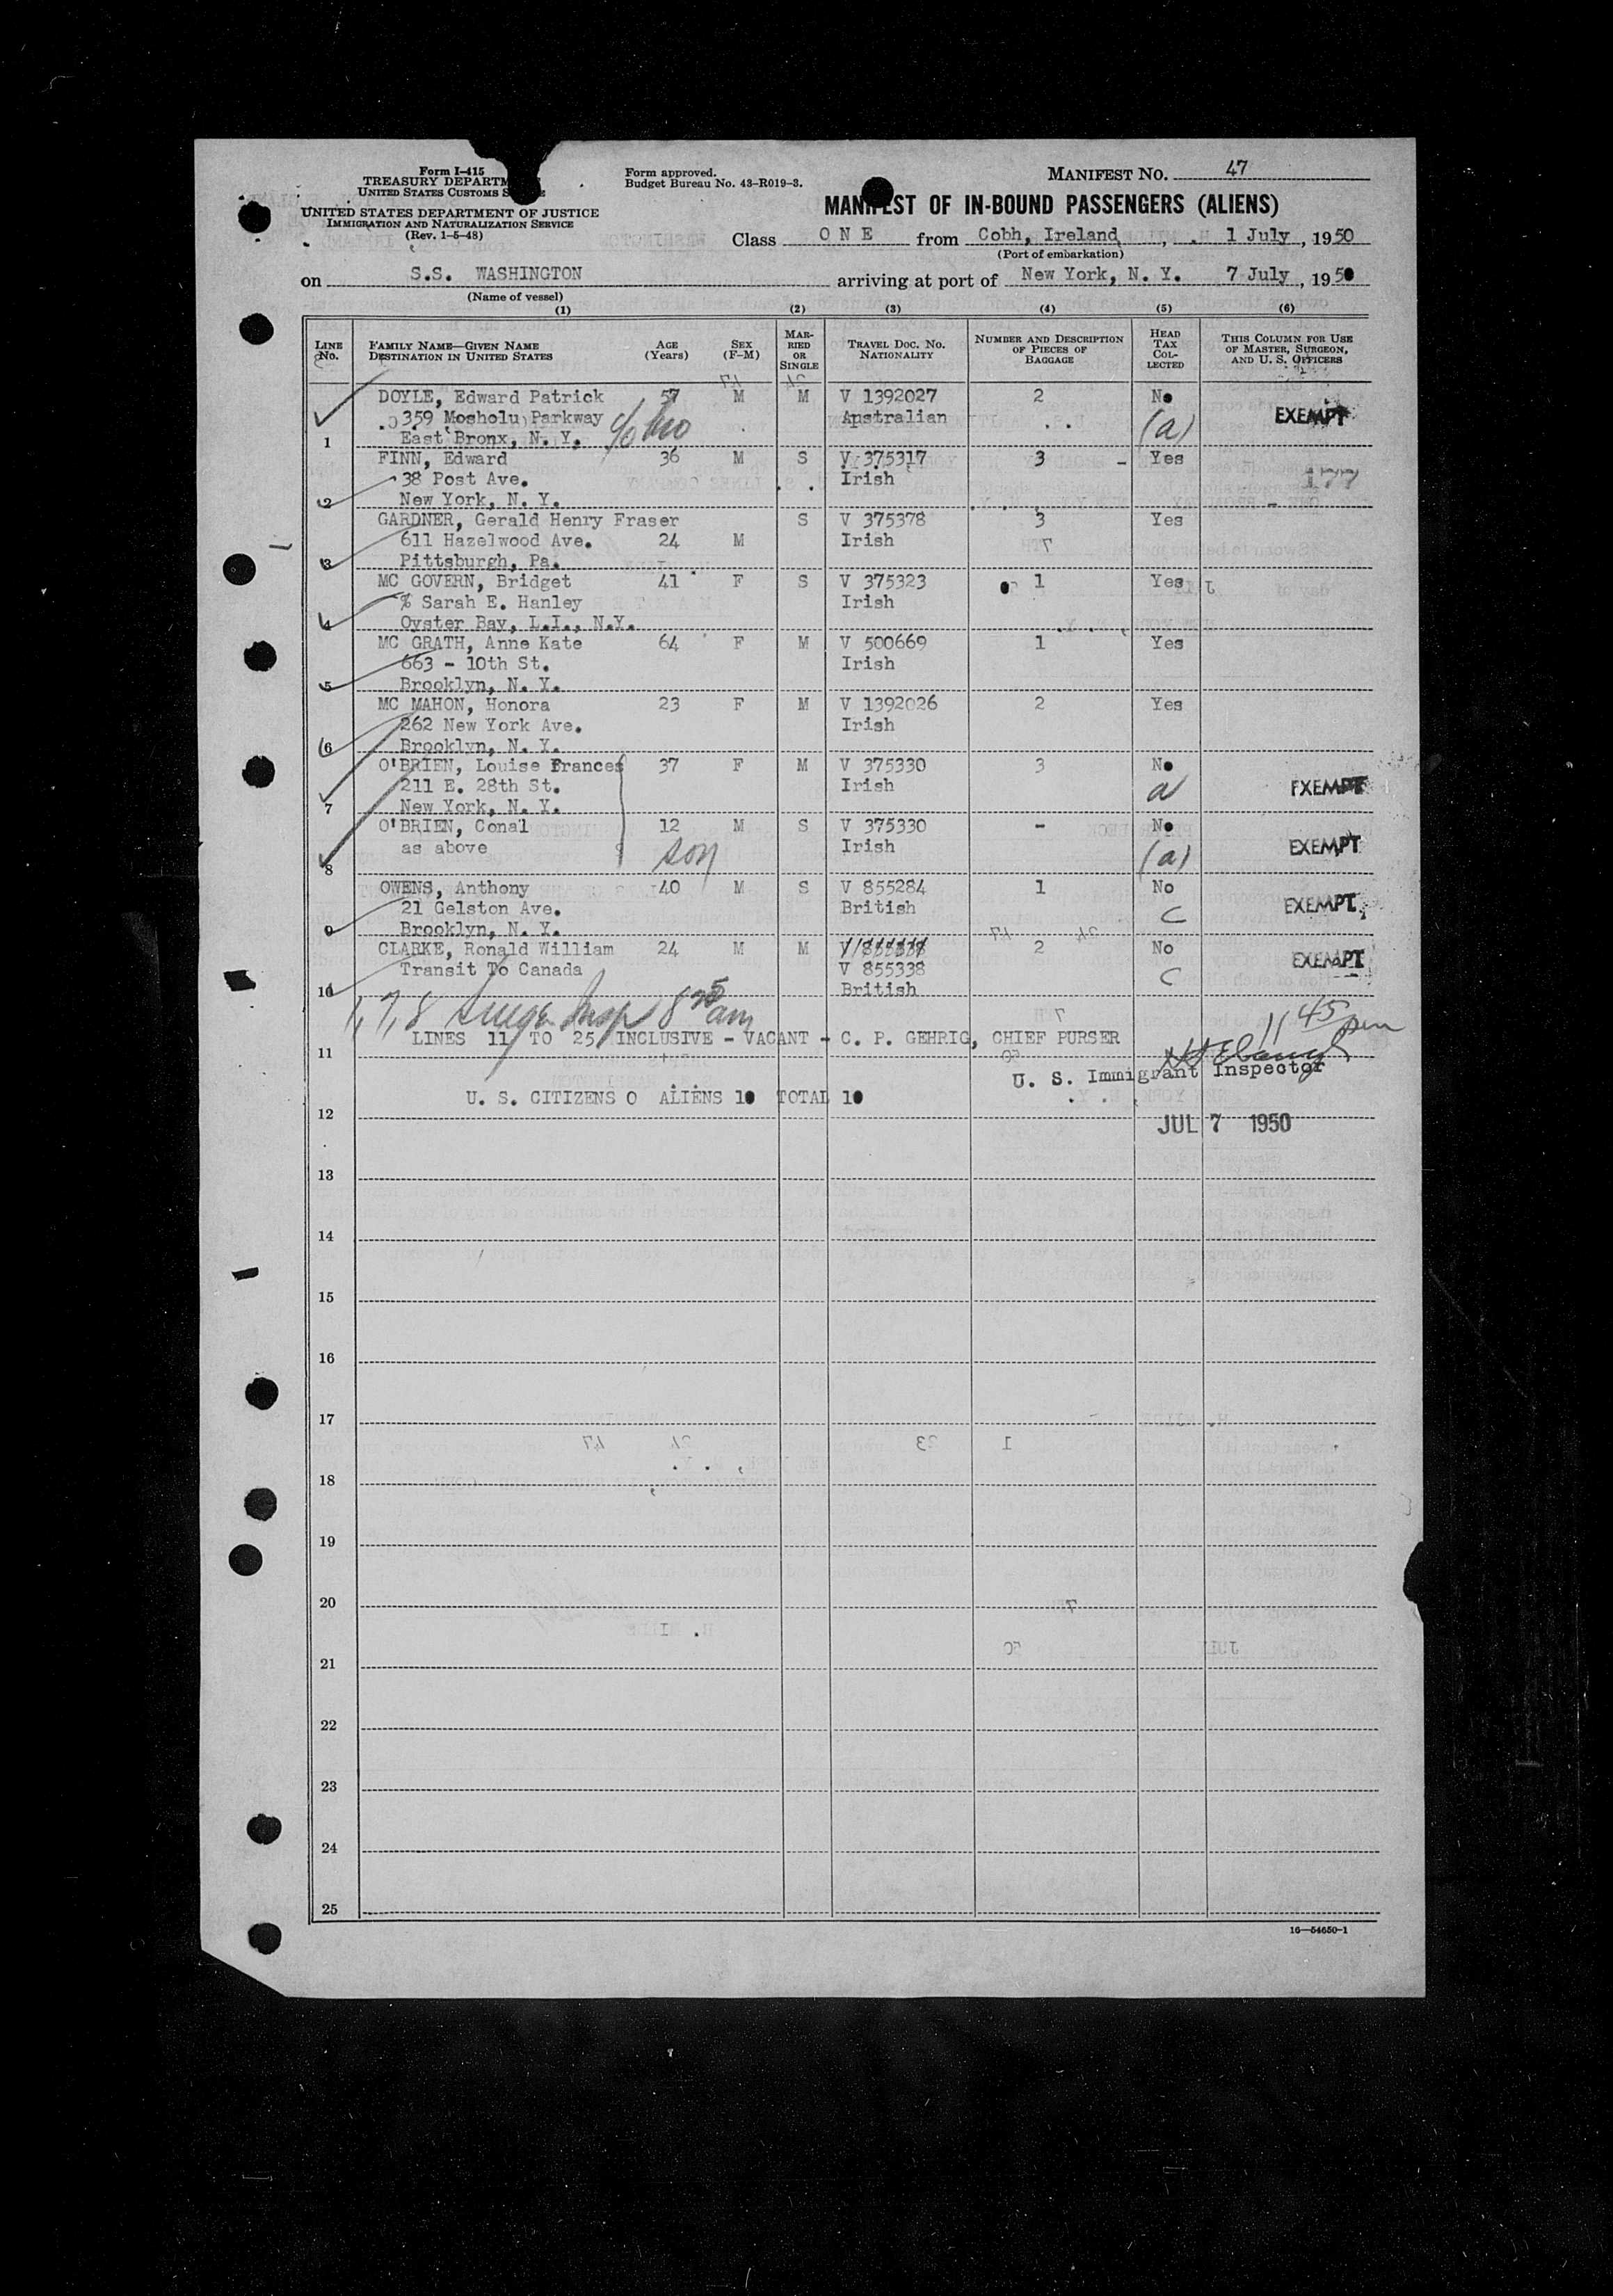 Form I-415
TREASURY DEPARTM
UNITED STATES CUSTOMS S
UNITED STATES DEPARTMENT OF JUSTICE
IMMIGRATION AND NATURALIZATION SERVICE
(Rev. 1-5-48)
Form approved.
Budget Bureau No. 43-R019-3.
MANIFEST NO. 47
MANIFEST OF IN-BOUND PASSENGERS (ALIENS)
Class O N E from Cobh, Ireland, 1 July, 1950
(Port of embarkation)
on S.S. WASHINGTON arriving at port of New York, N. Y. 7 July, 1950
(Name of vessel)
(1) (2) (3) (4) (5) (6)
LINE No. FAMILY NAME—GIVEN NAME DESTINATION IN UNITED STATES AGE (Years) SEX (F-M) MARRIED OR SINGLE TRAVEL DOC. NO. NATIONALITY NUMBER AND DESCRIPTION OF PIECES OF BAGGAGE HEAD TAX COLLECTED THIS COLUMN FOR USE OF MASTER, SURGEON, AND U. S. OFFICERS
DOYLE, Edward Patrick 57 M M V 1392027 2 No
359 Mosholu Parkway Australian (a) EXEMPT
1 East Bronx, N. Y.
FINN, Edward 36 M S V 375317 3 - Yes
38 Post Ave. Irish 177
2 New York, N. Y.
GARDNER, Gerald Henry Fraser S V 375378 3 Yes
611 Hazelwood Ave. 24 M Irish
3 Pittsburgh, Pa.
MC GOVERN, Bridget 41 F S V 375323 1 Yes
% Sarah E. Hanley Irish
4 Oyster Bay, L.I., N.Y.
MC GRATH, Anne Kate 64 F M V 500669 1 Yes
663 - 10th St. Irish
5 Brooklyn, N. Y.
MC MAHON, Honora 23 F M V 1392026 2 Yes
262 New York Ave. Irish
6 Brooklyn, N. Y.
O'BRIEN, Louise Frances 37 F M V 375330 3 No
211 E. 28th St. Irish a EXEMPT
7 New York, N. Y.
O'BRIEN, Conal 12 M S V 375330 - No
as above son Irish (a) EXEMPT
8
OWENS, Anthony 40 M S V 855284 1 No
21 Gelston Ave. British C EXEMPT
9 Brooklyn, N. Y.
CLARKE, Ronald William 24 M M 2 No
Transit To Canada V 855338 C EXEMPT
10 British
1, 7, 8 Insp 8 25 am
11 45 pm
LINES 11 TO 25 INCLUSIVE - VACANT - C. P. GEHRIG, CHIEF PURSER
11
U. S. Immigrant Inspector
U. S. CITIZENS 0 ALIENS 10 TOTAL 10
12
JUL 7 1950
13
14
15
16
17
18
19
20
21
22
23
24
25
16—54650-1